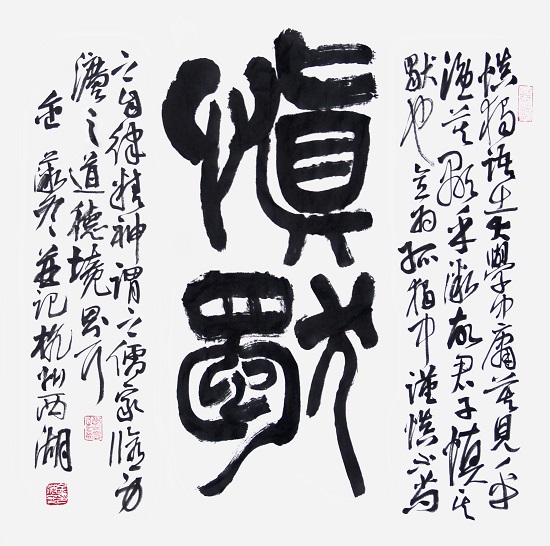 慎獨
慎独語出大學中庸莫見乎
隐莫顯乎微故君子慎其
獨也意为孤独中謹慎不苟
之自律精神謂之儒家修身
之道德境界可
冬並记杭州西湖